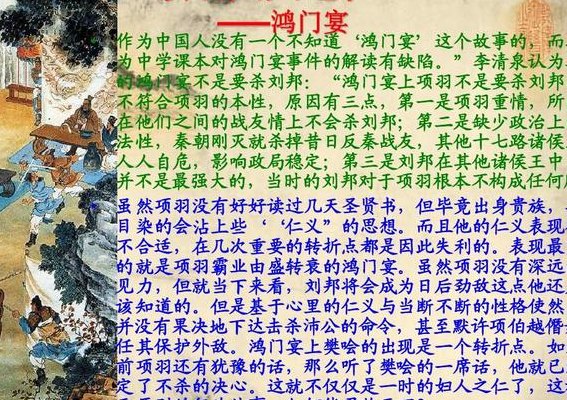 ——鸿门宴
作为中国人没有一个不知道‘鸿门宴’这个故事的，而
为中学课本对鸿门宴事件的解读有缺陷。”李清泉认为
的鸿门宴不是要杀刘邦：“鸿门宴上项羽不是要杀刘邦
不符合项羽的本性，原因有三点，第一是项羽重情，所
在他们之间的战友情上不会杀刘邦；第二是缺少政治上
法性，秦朝刚灭就杀掉昔日反秦战友，其他十七路诸侯
人人自危，影响政局稳定；第三是刘邦在其他诸侯王中
并不是最强大的，当时的刘邦对于项羽根本不构成任何
虽然项羽没有好好读过几天圣贤书，但毕竟出身贵族，
目染的会沾上些‘‘仁义”的思想。而且他的仁义表现
不合适，在几次重要的转折点都是因此失利的。表现最
的就是项羽霸业由盛转衰的鸿门宴。虽然项羽没有深远
见力，但就当下来看，刘邦将会成为日后劲敌这点他还
该知道的。但是基于心里的仁义与当断不断的性格使然
并没有果决地下达击杀沛公的命令，甚至默许项伯越僭
任其保护外敌。鸿门宴上樊哙的出现是一个转折点。如
前项羽还有犹豫的话，那么听了樊哙的一席话，他就已
定了不杀的决心。这就不仅仅是一时的妇人之仁了，这